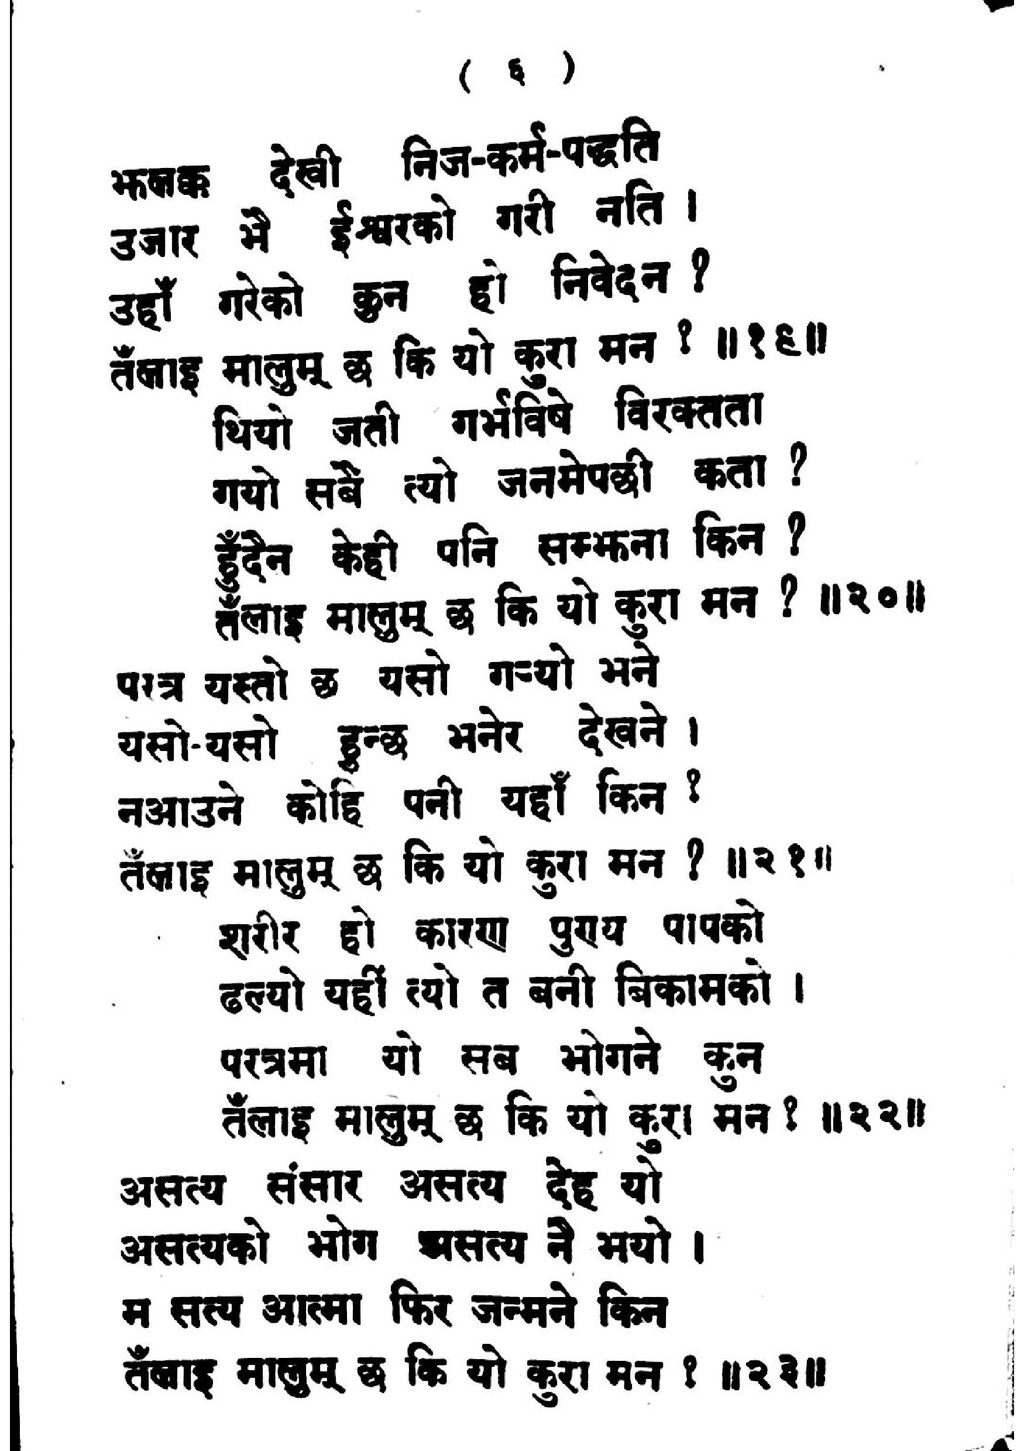 ( ६ )
झलक्क देखी निज-कर्म-पद्धति
उजार भै ईश्वरको गरी नति ।
उहाँ गरेको कुन हो निवेदन ?
तँलाइ मालुम् छ कि यो कुरा मन ? ॥१९॥
थियो जती गर्भविषे विरक्तता
गयो सबै त्यो जनमेपछी कता ?
हुँदैन केही पनि सम्झना किन ?
तँलाइ मालुम् छ कि यो कुरा मन ? ॥२०॥
परत्र यस्तो छ यसो गर्‍यो भने
यसो-यसो हुन्छ भनेर देखने ।
नआउने कोहि पनी यहाँ किन ?
तँलाइ मालुम् छ कि यो कुरा मन ? ॥२१॥
शरीर हो कारण पुण्य पापको
ढल्यो यहीं त्यो त बनी बिकामको ।
परत्रमा यो सब भोगने कुन
तँलाइ मालुम् छ कि यो कुरा मन ? ॥२२॥
असत्य संसार असत्य देह यो
असत्यको भोग असत्य नै भयो ।
म सत्य आत्मा फिर जन्मने किन
तँलाइ मालुम् छ कि यो कुरा मन ? ॥२३॥